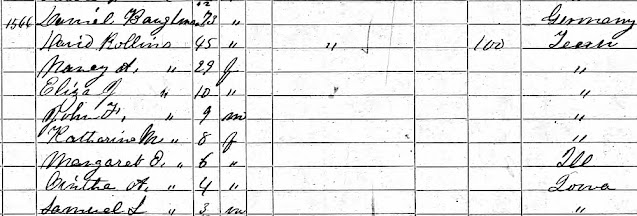 1566 Daniel Baughman 23 " Germany
David Rollins 45 " " 100 Tenn
Nancy A. " 29 f "
Eliza J " 10 " "
John F. " 9 m "
Katharine M " 8 f "
Margaret E. " 6 " Ill
Cintha A. " 4 " Iowa
Samuel L " 3 m "